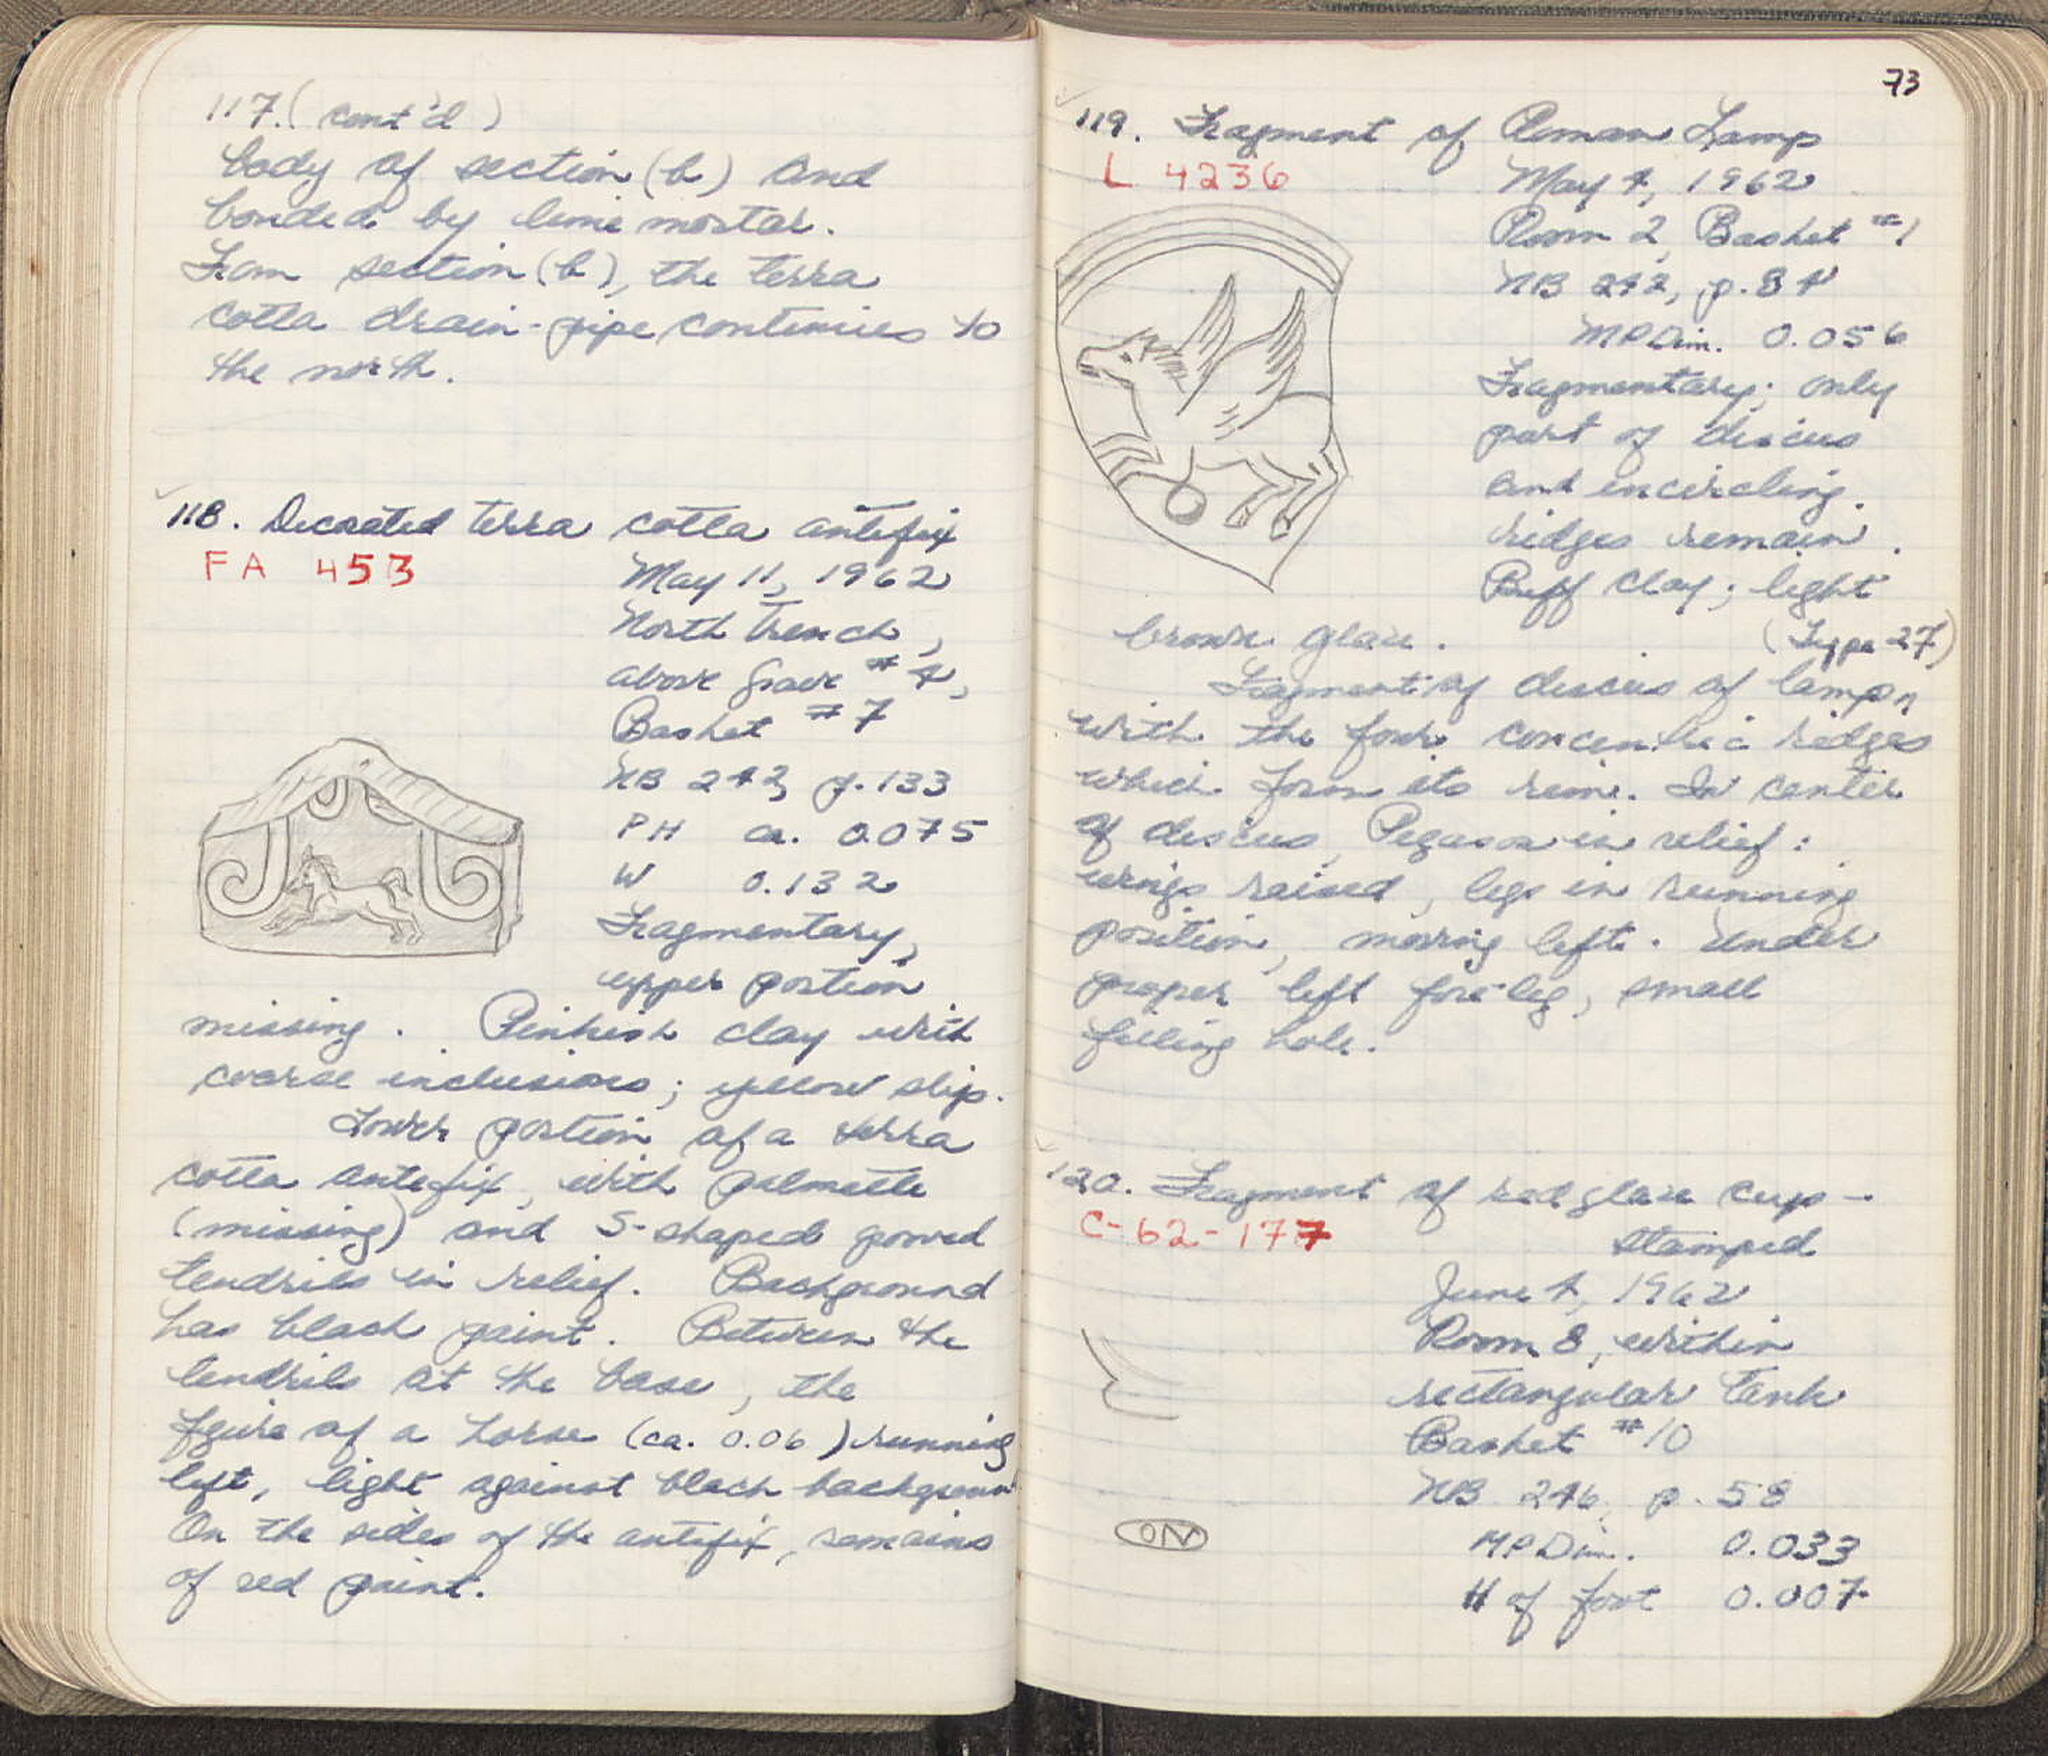 117. (cont'd)
body of section (b) and
bonded by lime mortar.
From section (b), the terra
cotta drain-pipe continues to
the north.
118. Decorated terra cotta antefix
FA 453
May 11, 1962
North Trench,
above Grave #4,
Basket #7
NB 242, p. 133
PH ca. 0.075
W 0.132
Fragmentary,
upper portion
missing. Pinkish clay with
coarse inclusions; yellow slip.
Lower portion of a terra
cotta antefix, with palmette
(missing) and S-shaped grooved
tendrils in relief. Background
has black paint. Between the
tendrils at the base, the
figure of a horse (ca. 0.06) running
left, light against black background
On the sides of the antefix, remains
of red paint.
73
119. Fragment of Roman Lamp
L 4236
May 4, 1962
Room 2, Basket #1
NB 242, p. 84
MPDim. 0.056
Fragmentary; only
part of discus
and encircling
ridges remain.
Buff clay; light
brown glaze. (Type 27)
Fragment of discus of lamp,
with the four concentric ridges
which form its rim. In center
of discus, Pegasos in relief:
wings raised, legs in running
position, moving left. Under
proper left foreleg, small
filling hole.
120. Fragment of red glaze cup -
C-62-177
stamped
June 4, 1962
Room 8, within
rectangular tank
Basket #10
NB 246, p. 58
MPDim. 0.033
H of foot 0.007
ON